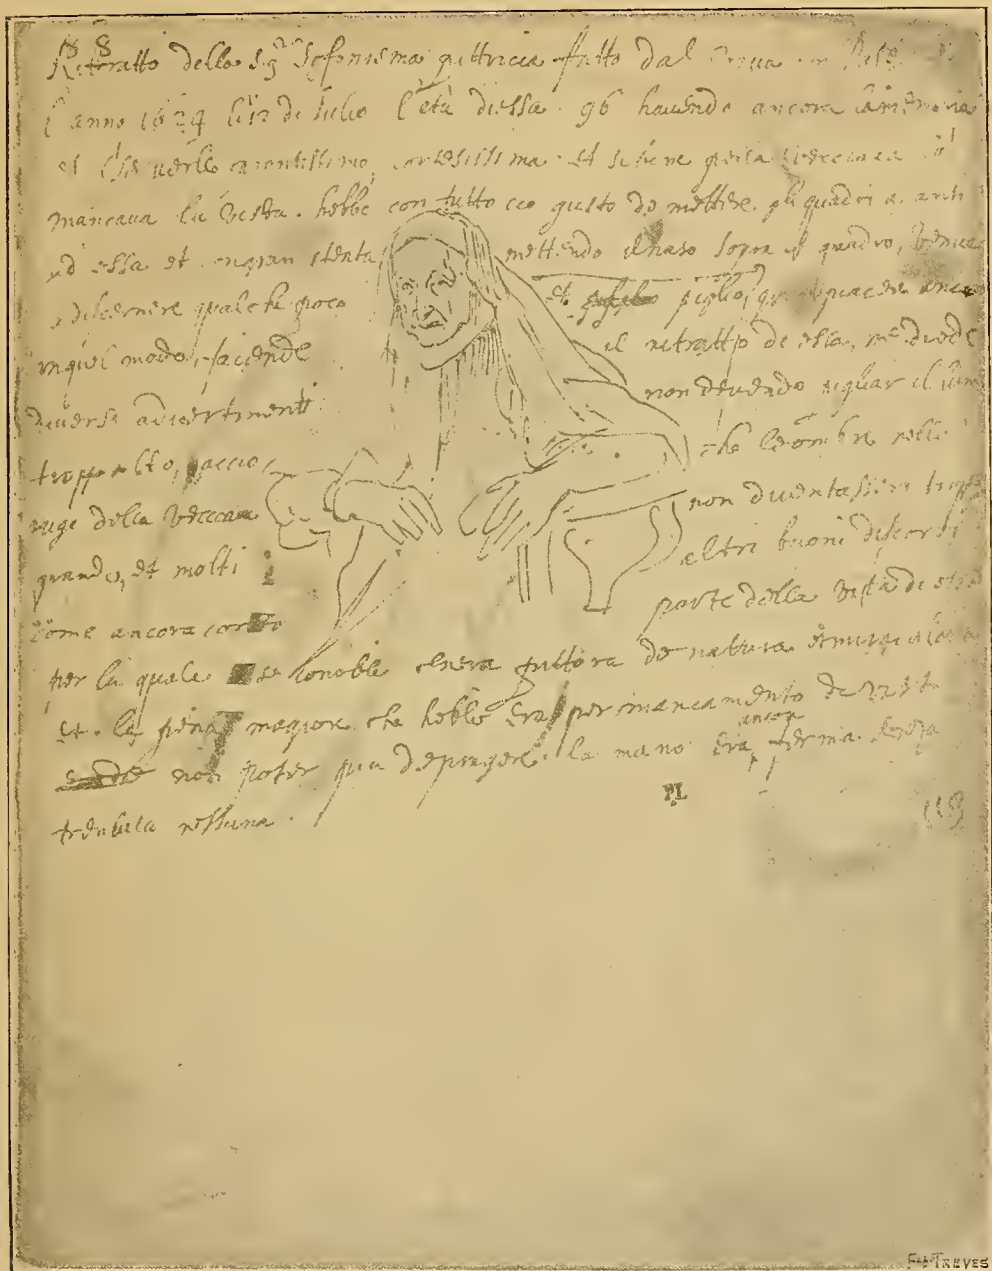 88
Rittratto della Sigra Sofonisma pittricia fatto dal vivo in
l'anno 1624 li 12 di Julio l'età di essa 96 havendo ancora la memoria
et cervello prontissimo, cortesissima et sebene per la vecciaia
mancava la vista hebbe con tutto cio gusto de mettere gli quadri a
ad essa et con gran stenta mettendo il naso sopra il quadro, venne
a discernere qualche poco et piglio, gran piacere ancora
in quel modo, facendo il ritratto de essa, me diede
diversi advertimenti non devendo pigliar il lume
troppo alto, accio che le ombre nelle
ruge della vecciaia non diventassero troppo
grande, et molti altri buoni discorsi
come ancora conto parte della vita di essa
per la quale se conobbe chera pittora de natura et miraculosa
et la pena magiore che hebbe era per mancamento de vista
non poter piu depingere la mano era ancora ferma senza
trembula nessuna.
PL
FLLI TREVES